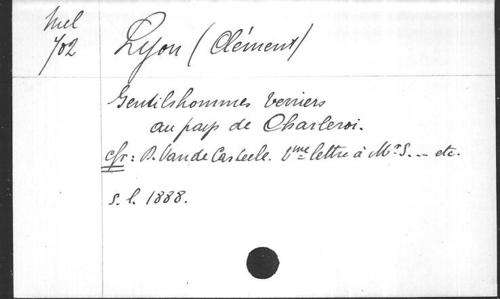 Mel
702
Lyon (Clément)
Gentilshommes Verriers
au pays de Charleroi.
cfr: D. Van de Casteele. Vme lettre à Mr S... etc.
s. l. 1888.